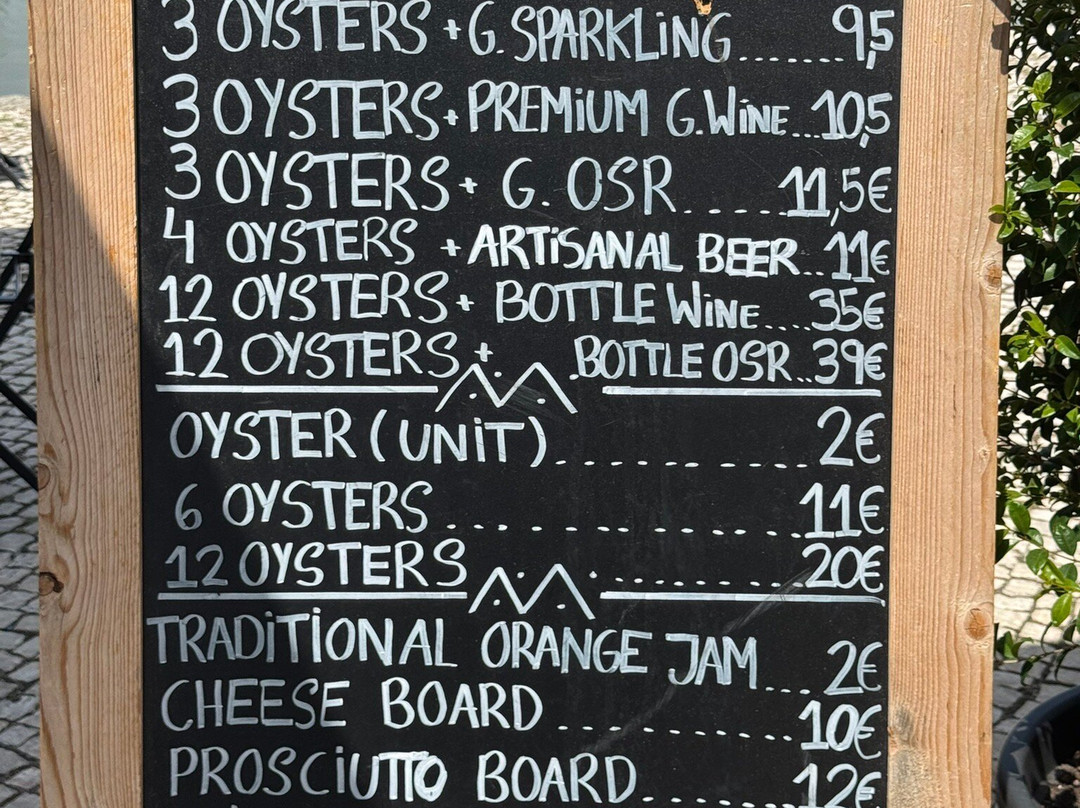 3 OYSTERS + G. SPARKLiNG........9,5
3 OYSTERS + PREMiUM G. WiNE...10,5
3 OYSTERS + G. OSR.......11,5€
4 OYSTERS + ARTiSANAL BEER..11€
12 OYSTERS + BOTTLE WiNE....35€
12 OYSTERS + BOTTLE OSR..39€
OYSTER (UNiT)............2€
6 OYSTERS.............11€
12 OYSTERS ...........20€
TRADiTiONAL ORANGE JAM....2€
CHEESE BOARD...........10€
PROSCiUTTO BOARD.......12€